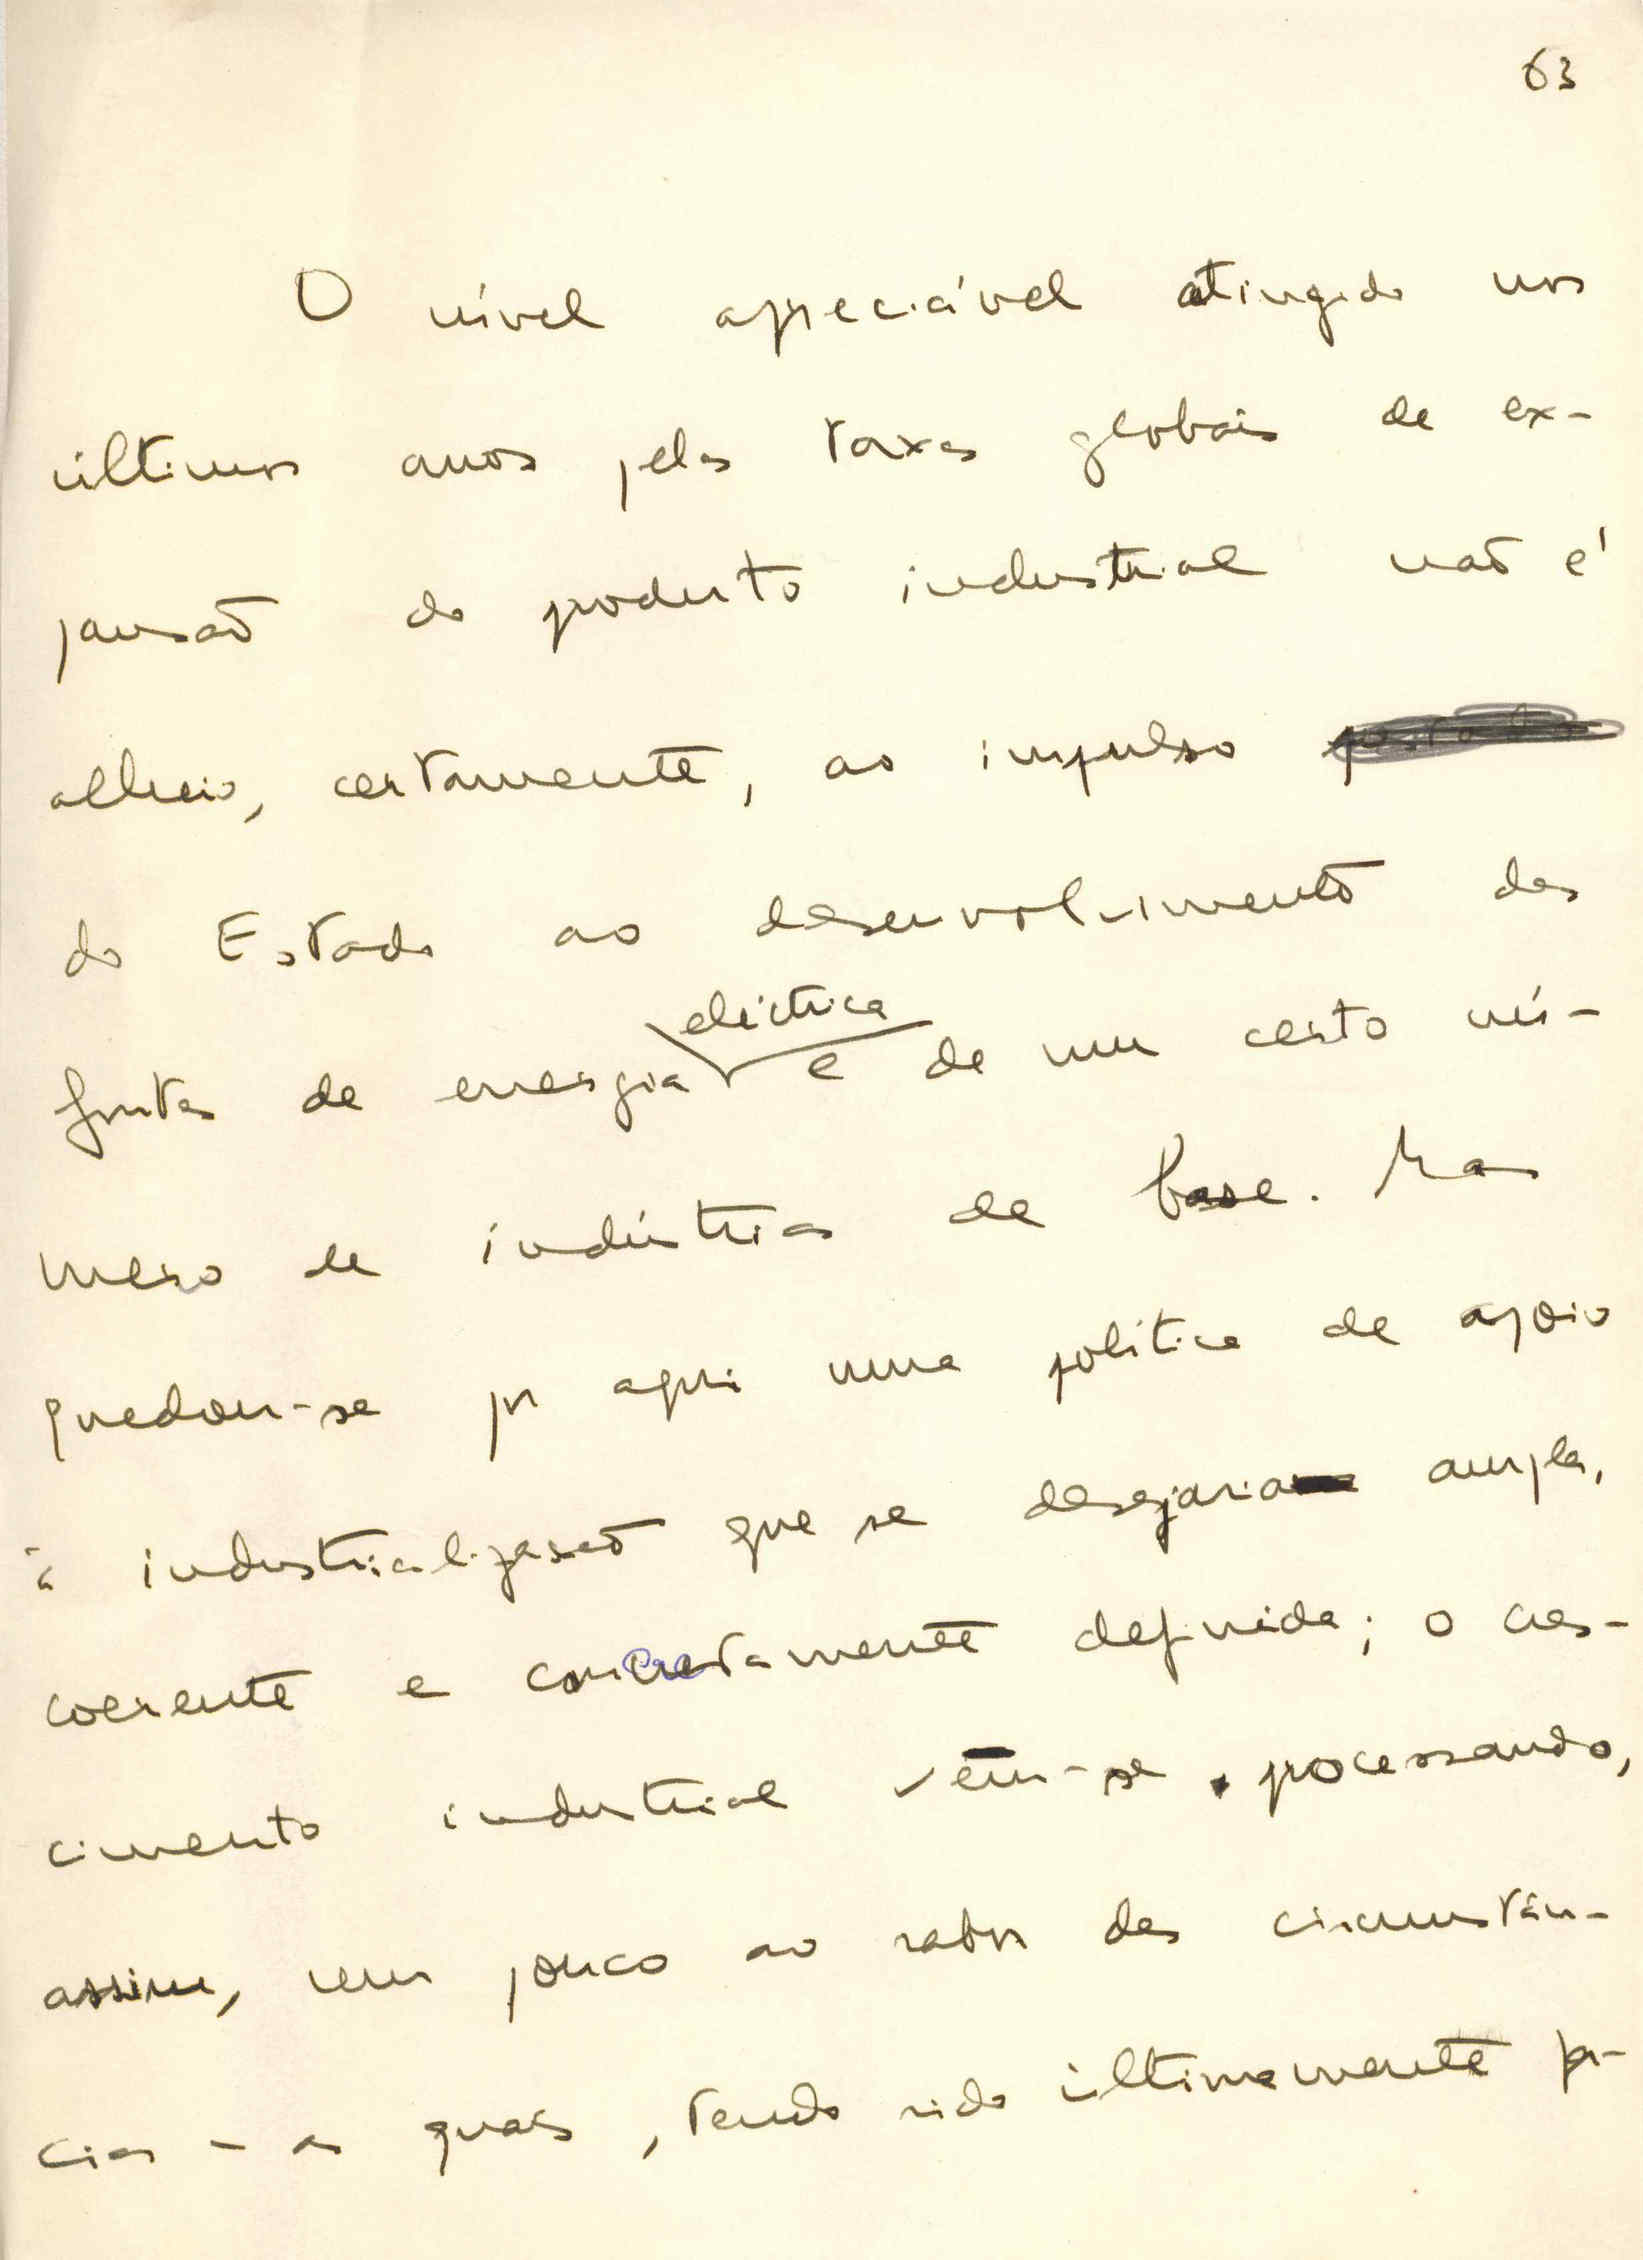 63
O nível apreciável atingido nos
últimos anos pelas taxas globais de ex-
pansão do produto industrial não é
alheio, certamente, ao impulso
do Estado ao desenvolvimento das
eléctrica
fontes de energia e de um certo nú-
mero de indústrias de base. Mas
quedou-se por aqui uma política de apoio
à industrialização que se desejaria ampla,
coerente e concretamente definida; o cres-
cimento industrial vem-se processando,
assim, um pouco ao sabor das circunstân-
cias - as quais, tendo sido ultimamente